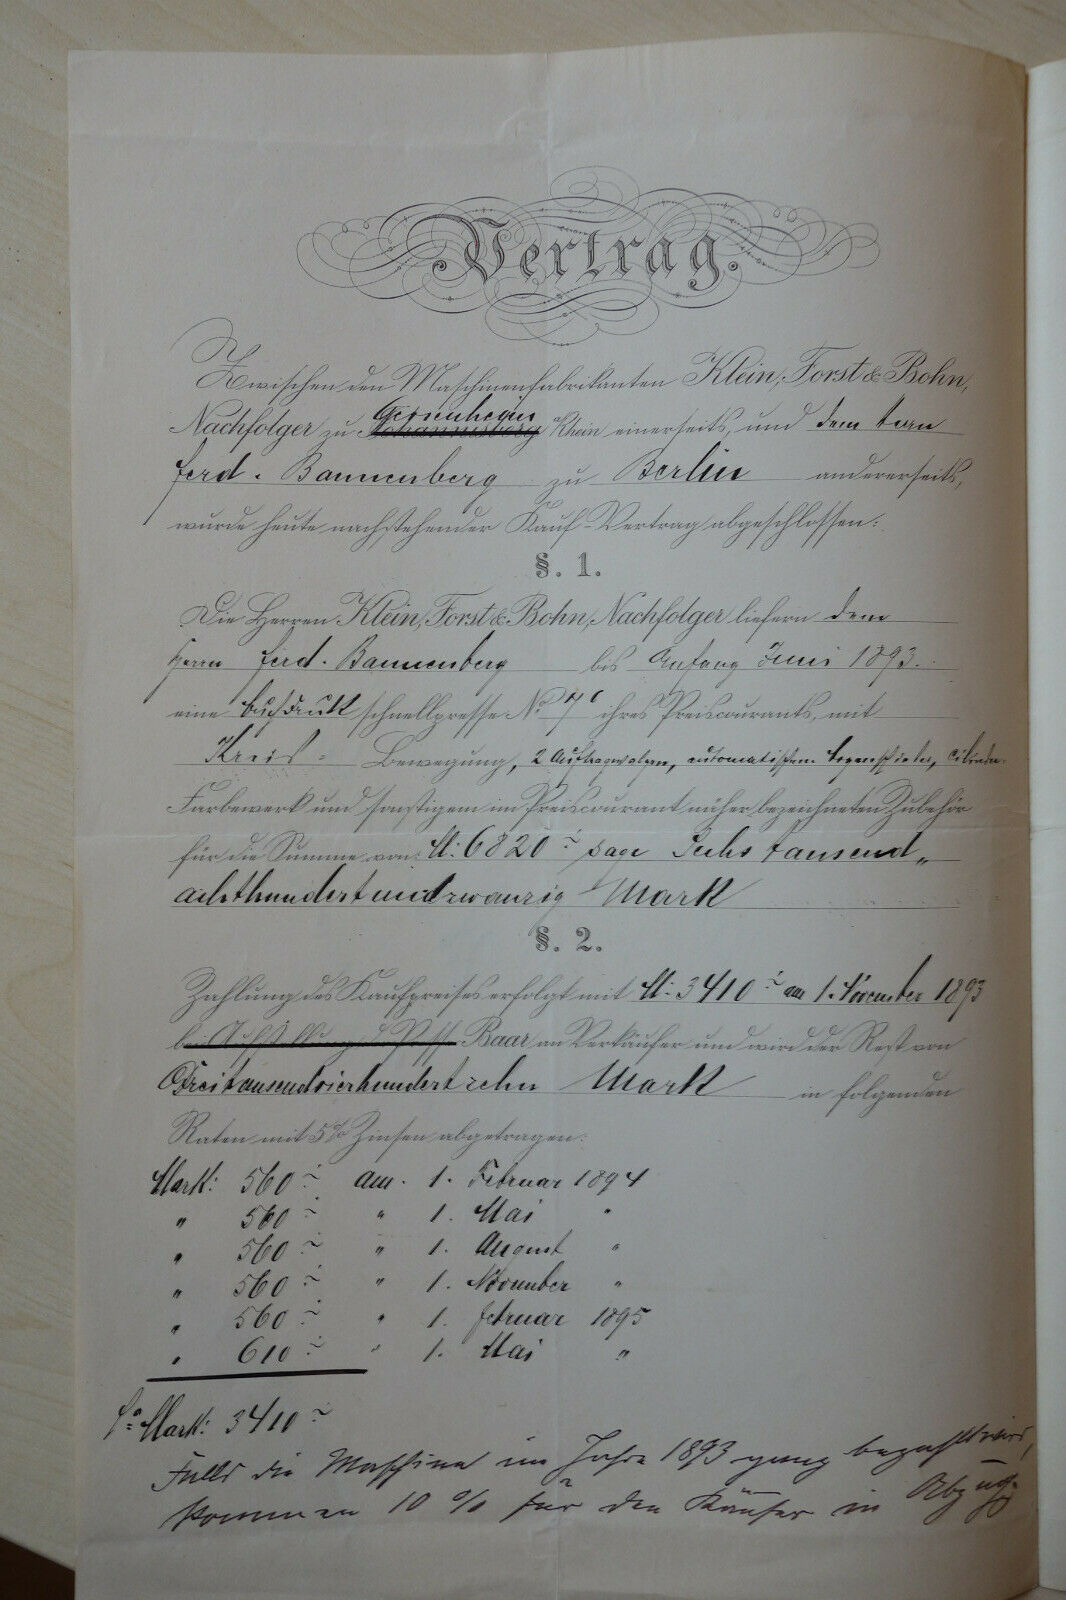 Vertrag.
Zwischen den Maschinenfabrikanten Klein, Forst & Bohn,
Nachfolger zu Johannisberg Geisenheim Rhein einerseits, und dem Herrn
Ferd. Bannenberg zu Berlin andererseits,
wurde heute nachstehender Kauf-Vertrag abgeschlossen:
§. 1.
Die Herren Klein, Forst & Bohn, Nachfolger liefern dem
Herrn Ferd. Bannenberg bis Anfang Juni 1893.
eine Buchdruck schnellpresse No 7c ihres Preiscourants, mit
Kreis- Bewegung, 2 Auftragwalzen, automatischem Bogenschieber, Cilinder-
Farbewerk und sonstigem im Preiscourant näher bezeichneten Zubehör
für die Summe von M: 6820 sage Sechstausend„
achthundertundzwanzig Mark
§. 2.
Zahlung des Kaufpreises erfolgt mit M: 3410 am 1. November 1893
Baar an Verkäufer und wird der Rest von
Dreitausendvierhundertzehn Mark in folgenden
Raten mit 5% Zinsen abgetragen:
Mark: 560 am 1. Februar 1894
" 560 " 1. Mai "
" 560 " 1. August "
" 560 " 1. November "
" 560 " 1. Februar 1895
" 610 " 1. Mai "
Sa Mark: 3410
Falls die Maschine im Jahre 1893 ganz bezahlt wird,
kommen 10 % für den Käufer in Abzug.